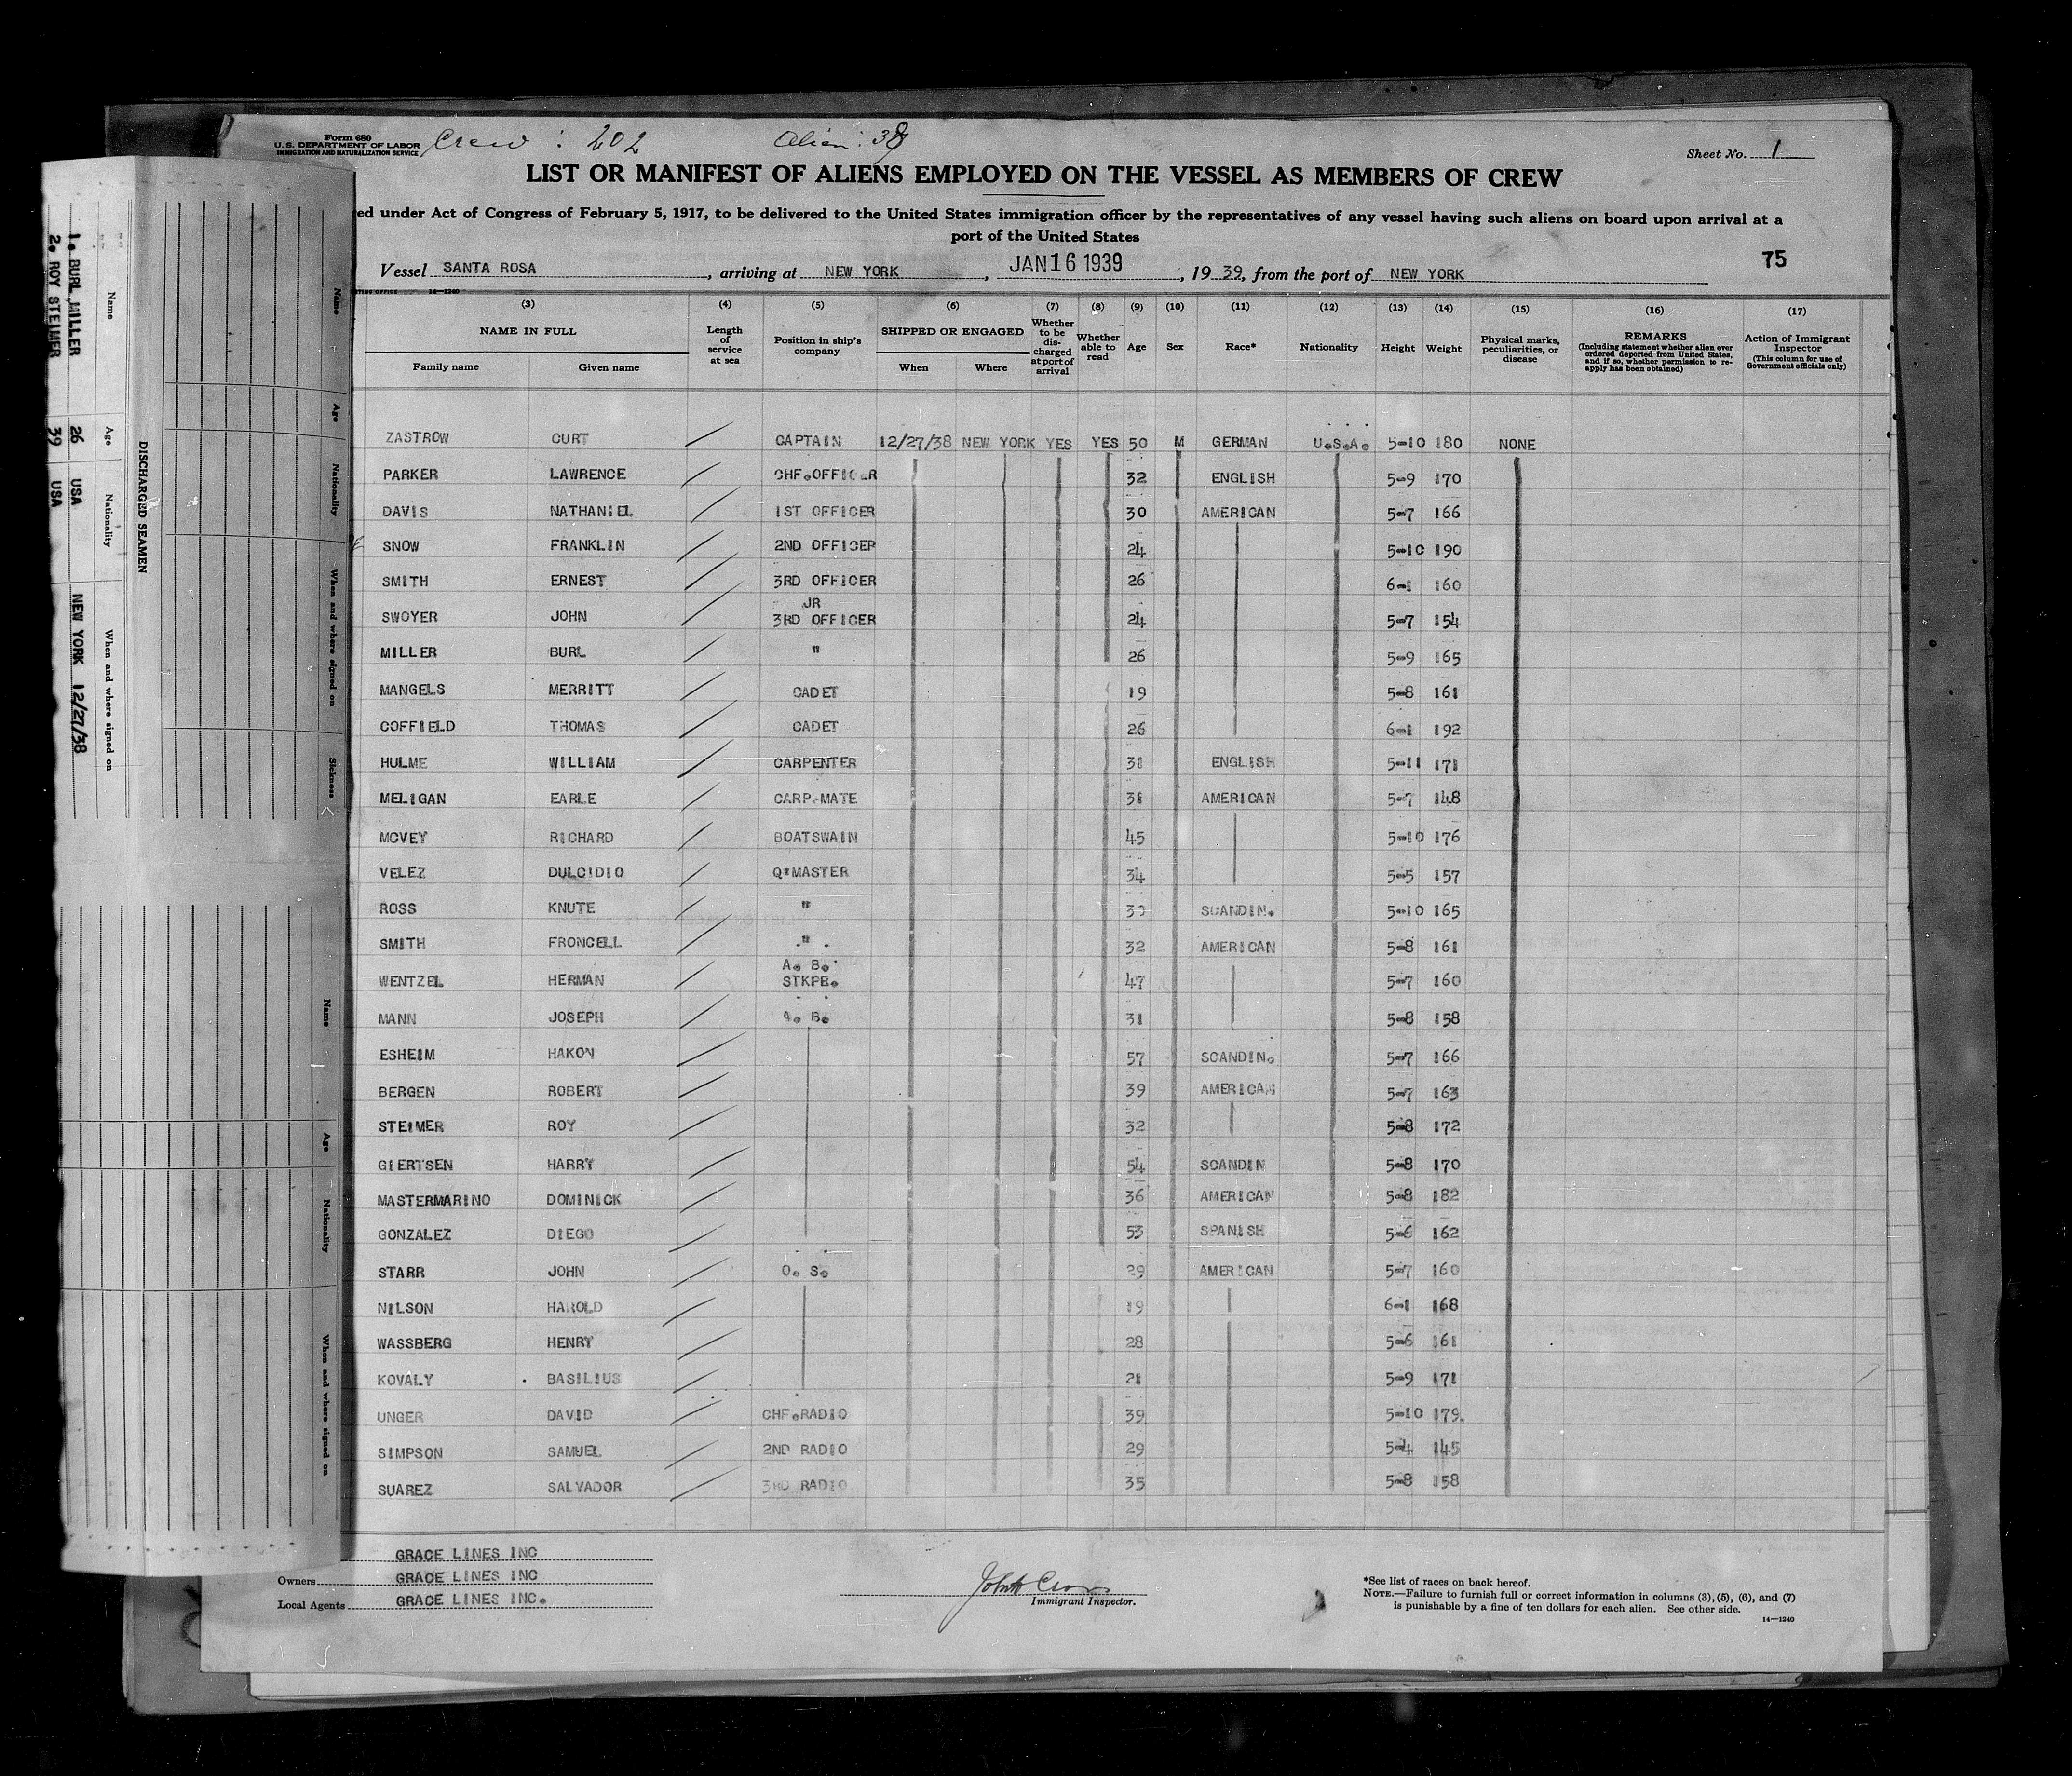 Form 680
U.S. DEPARTMENT OF LABOR
IMMIGRATION AND NATURALIZATION SERVICE
Crew : 202
Alien : 38
Sheet No. 1
LIST OR MANIFEST OF ALIENS EMPLOYED ON THE VESSEL AS MEMBERS OF CREW
ed under Act of Congress of February 5, 1917, to be delivered to the United States immigration officer by the representatives of any vessel having such aliens on board upon arrival at a
port of the United States
75
Vessel SANTA ROSA, arriving at NEW YORK, JAN 16 1939, 19 39, from the port of NEW YORK
14—1240
(3) (4) (5) (6) (7) (8) (9) (10) (11) (12) (13) (14) (15) (16) (17)
NAME IN FULL
Family name
Given name
Length of service at sea
Position in ship's company
SHIPPED OR ENGAGED
When
Where
Whether to be discharged at port of arrival
Whether able to read
Age
Sex
Race*
Nationality
Height
Weight
Physical marks, peculiarities, or disease
REMARKS
(Including statement whether alien ever ordered deported from United States, and if so, whether permission to re-apply has been obtained)
Action of Immigrant Inspector
(This column for use of Government officials only)
ZASTROW CURT CAPTAIN 12/27/38 NEW YORK YES YES 50 M GERMAN U.S.A. 5-10 180 NONE
PARKER LAWRENCE CHF.OFFICER 32 ENGLISH 5-9 170
DAVIS NATHANIEL 1ST OFFICER 30 AMERICAN 5-7 166
SNOW FRANKLIN 2ND OFFICER 24 5-10 190
SMITH ERNEST 3RD OFFICER 26 6-1 160
SWOYER JOHN JR 3RD OFFICER 24 5-7 154
MILLER BURL " 26 5-9 165
MANGELS MERRITT CADET 19 5-8 161
COFFIELD THOMAS CADET 26 6-1 192
HULME WILLIAM CARPENTER 31 ENGLISH 5-11 171
MELIGAN EARLE CARP.MATE 31 AMERICAN 5-7 148
MCVEY RICHARD BOATSWAIN 45 5-10 176
VELEZ DULCIDIO Q*MASTER 34 5-5 157
ROSS KNUTE " 30 SCANDIN. 5-10 165
SMITH FRONCELL " 32 AMERICAN 5-8 161
WENTZEL HERMAN A. B. STKPR. 47 5-7 160
MANN JOSEPH A. B. 31 5-8 158
ESHEIM HAKON 57 SCANDIN. 5-7 166
BERGEN ROBERT 39 AMERICAN 5-7 163
STEIMER ROY 32 5-8 172
GIERTSEN HARRY 54 SCANDIN 5-8 170
MASTERMARINO DOMINICK 36 AMERICAN 5-8 182
GONZALEZ DIEGO 53 SPANISH 5-6 162
STARR JOHN O. S. 29 AMERICAN 5-7 160
NILSON HAROLD 19 6-1 168
WASSBERG HENRY 28 5-6 161
KOVALY BASILIUS 21 5-9 171
UNGER DAVID CHF.RADIO 39 5-10 179
SIMPSON SAMUEL 2ND RADIO 29 5-4 145
SUAREZ SALVADOR 3RD RADIO 35 5-8 158
GRACE LINES INC
Owners GRACE LINES INC
Local Agents GRACE LINES INC.
Immigrant Inspector.
*See list of races on back hereof.
NOTE.—Failure to furnish full or correct information in columns (3), (5), (6), and (7)
is punishable by a fine of ten dollars for each alien. See other side.
14—1240
DISCHARGED SEAMEN
Name Age Nationality When and where signed on
1. BURL MILLER 26 USA NEW YORK 12/27/38
2. ROY STEIMER 39 USA
Name Age Nationality When and where signed on Sickness
Name Age Nationality When and where signed on